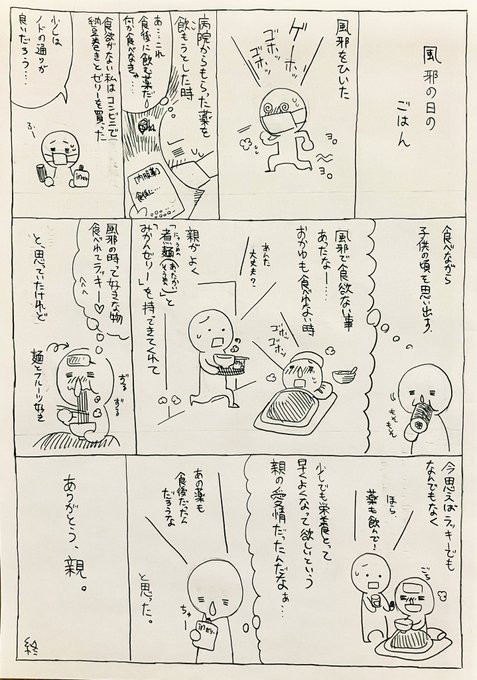 風邪の日の
ごはん
風邪をひいた
ゲーホッ
ゴホッ
ゴホッ
ヨロ
ヨロ
病院からもらった薬を
飲もうとした時
あ…これ
食後に飲む薬だ…
何か食べなきゃ…
食後に…
食欲がない私はコンビニで
納豆巻きとゼリーを買った
少しは
ノドの通りが
良いだろう…
食べながら
子供の頃を思い出す。
もぐ
もぐ
風邪で食欲ない事
あったなー…
おかゆも食べれない時
ゴホッ
ゴホッ
あんた
大丈夫?
親がよく
「煮麺(あたたかいそうめん)」と
みかんゼリー」を持ってきてくれて
風邪の時って好きな物
食べれてラッキー♡
へへへ
と、思っていたけれど
麺とフルーツ好き
ずる
ずる
今思えばラッキーでも
なんでもなく
ほら、
薬も飲んで!
少しでも栄養とって
早くよくなって欲しいという
親の愛情だったんだなぁ…
あの薬も
食後だったん
だろうな
ちゅー
と思った。
ありがとう、親。
終